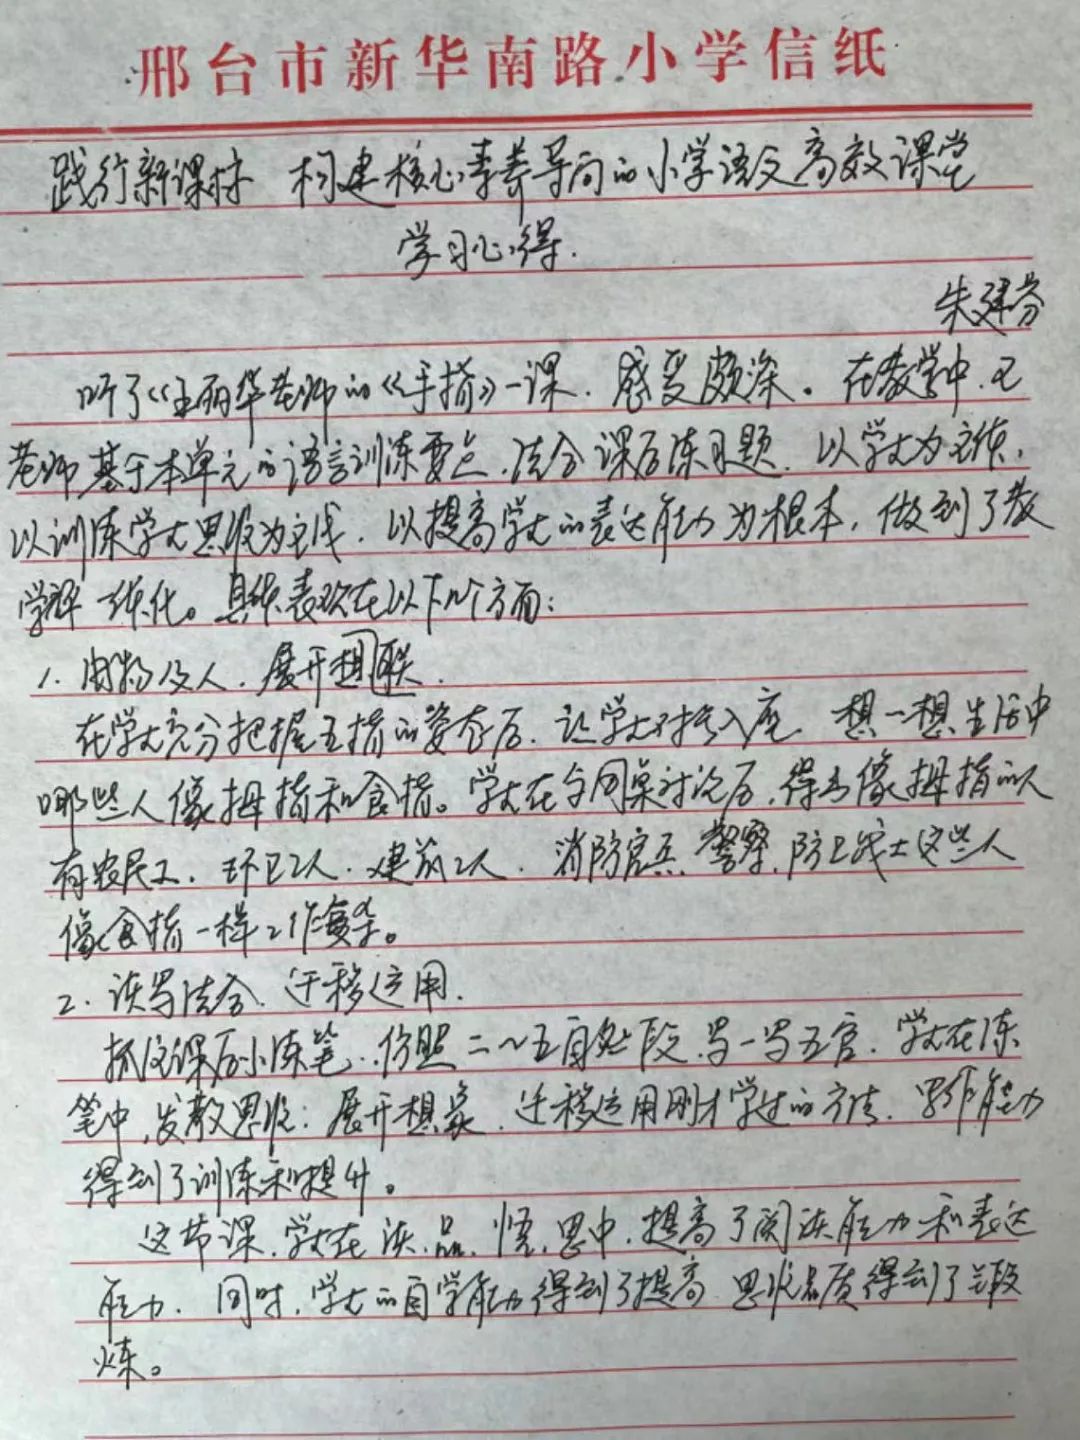 邢台市新华南路小学信纸
践行新课标 构建核心素养导向的小学语文高效课堂
学习心得.
朱建芬
听了《王丽华老师的《手指》一课，感受颇深。在教学中，王
老师基于本单元的语言训练要点，结合课后练习题，以学生为主体，
以训练学生思维为主线，以提高学生的表达能力为根本，做到了教
学评一体化。具体表现在以下几个方面：
1. 由物及人，展开想联.
在学生充分把握五指的姿态后，让学生对号入座，想一想生活中
哪些人像拇指和食指。学生在与同桌讨论后，得出像拇指的人
有农民工、环卫工人、建筑工人，消防官兵、警察、防卫战士这些人
像食指一样工作复杂。
2. 读写结合，迁移运用.
抓住课后小练笔，仿照二~五自然段，写一写五官，学生在练
笔中，发散思维：展开想象，迁移运用刚才学过的方法，写作能力
得到了训练和提升。
这节课，学生在读、品、悟、思中，提高了阅读能力和表达
能力，同时，学生的自学能力得到了提高，思维品质得到了锻
炼。